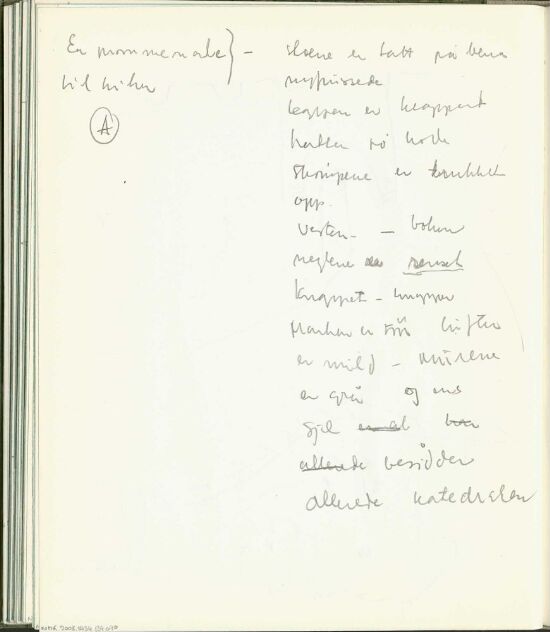 En prommenade } –
til kirken
A
skoene er tatt på bena
nypussede
er kneppet
hatten på hode
strømpene er trukket
opp.
vesten – – boken
neglene renset
knappet – knapper
Marken er luften
er mild – murene
er grå og ens
sjel
allerede besidder
allerede katedralen